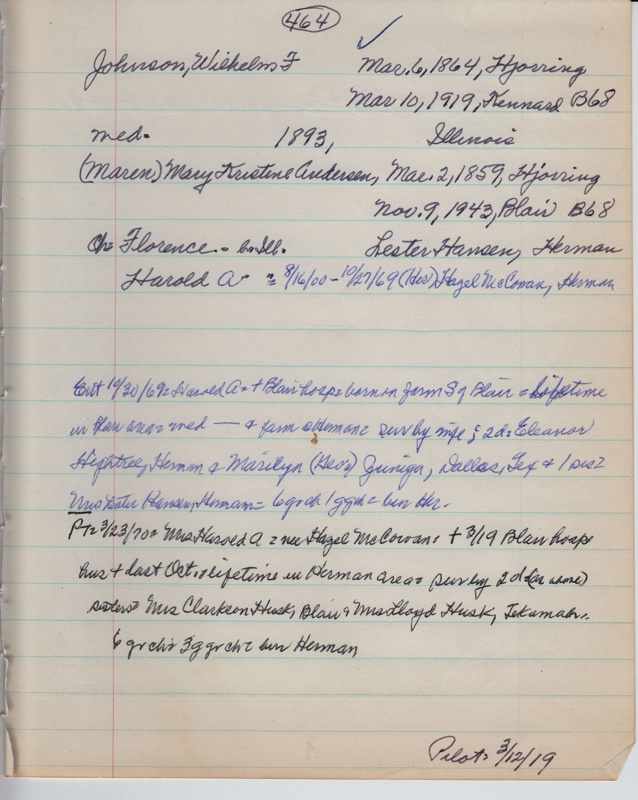 464
Johnson, Wilhelm F Mar. 6, 1864, Hjorring
Mar 10, 1919, Kennard B68
med. 1893, Illinois
(Maren) Mary Kristine Andersen, Mar. 2, 1859, Hjorring
Nov. 9, 1943, Blair B68
Ch: Florence - bn Ill. Lester Hansen, Herman
Harold A 8/16/00 - 10/27/69 (Geo) Hazel McCowan, Herman
Ent 10/30/69 = Harold A = + Blair hosp = born on farm S of Blair = lifetime
in Blair area = med — & farm Herman = surv by wife & 2 d = Eleanor
Hightree, Herman & Marilyn (Geo) Zuniga, Dallas, Tex & 1 sis =
Mrs Lester Hansen, Herman = 6 grch 1 ggch = bur Her.
PT = 3/23/70 = Mrs Harold A = nee Hazel McCowan = + 3/19 Blair hosp
hus + last Oct. = lifetime in Herman area = surv by 2 d (as above)
sisters = Mrs Clarkson Husk, Blair & Mrs Lloyd Husk, Tekamah.
6 grch = 3 ggrch = bur Herman
Pilot = 3/12/19